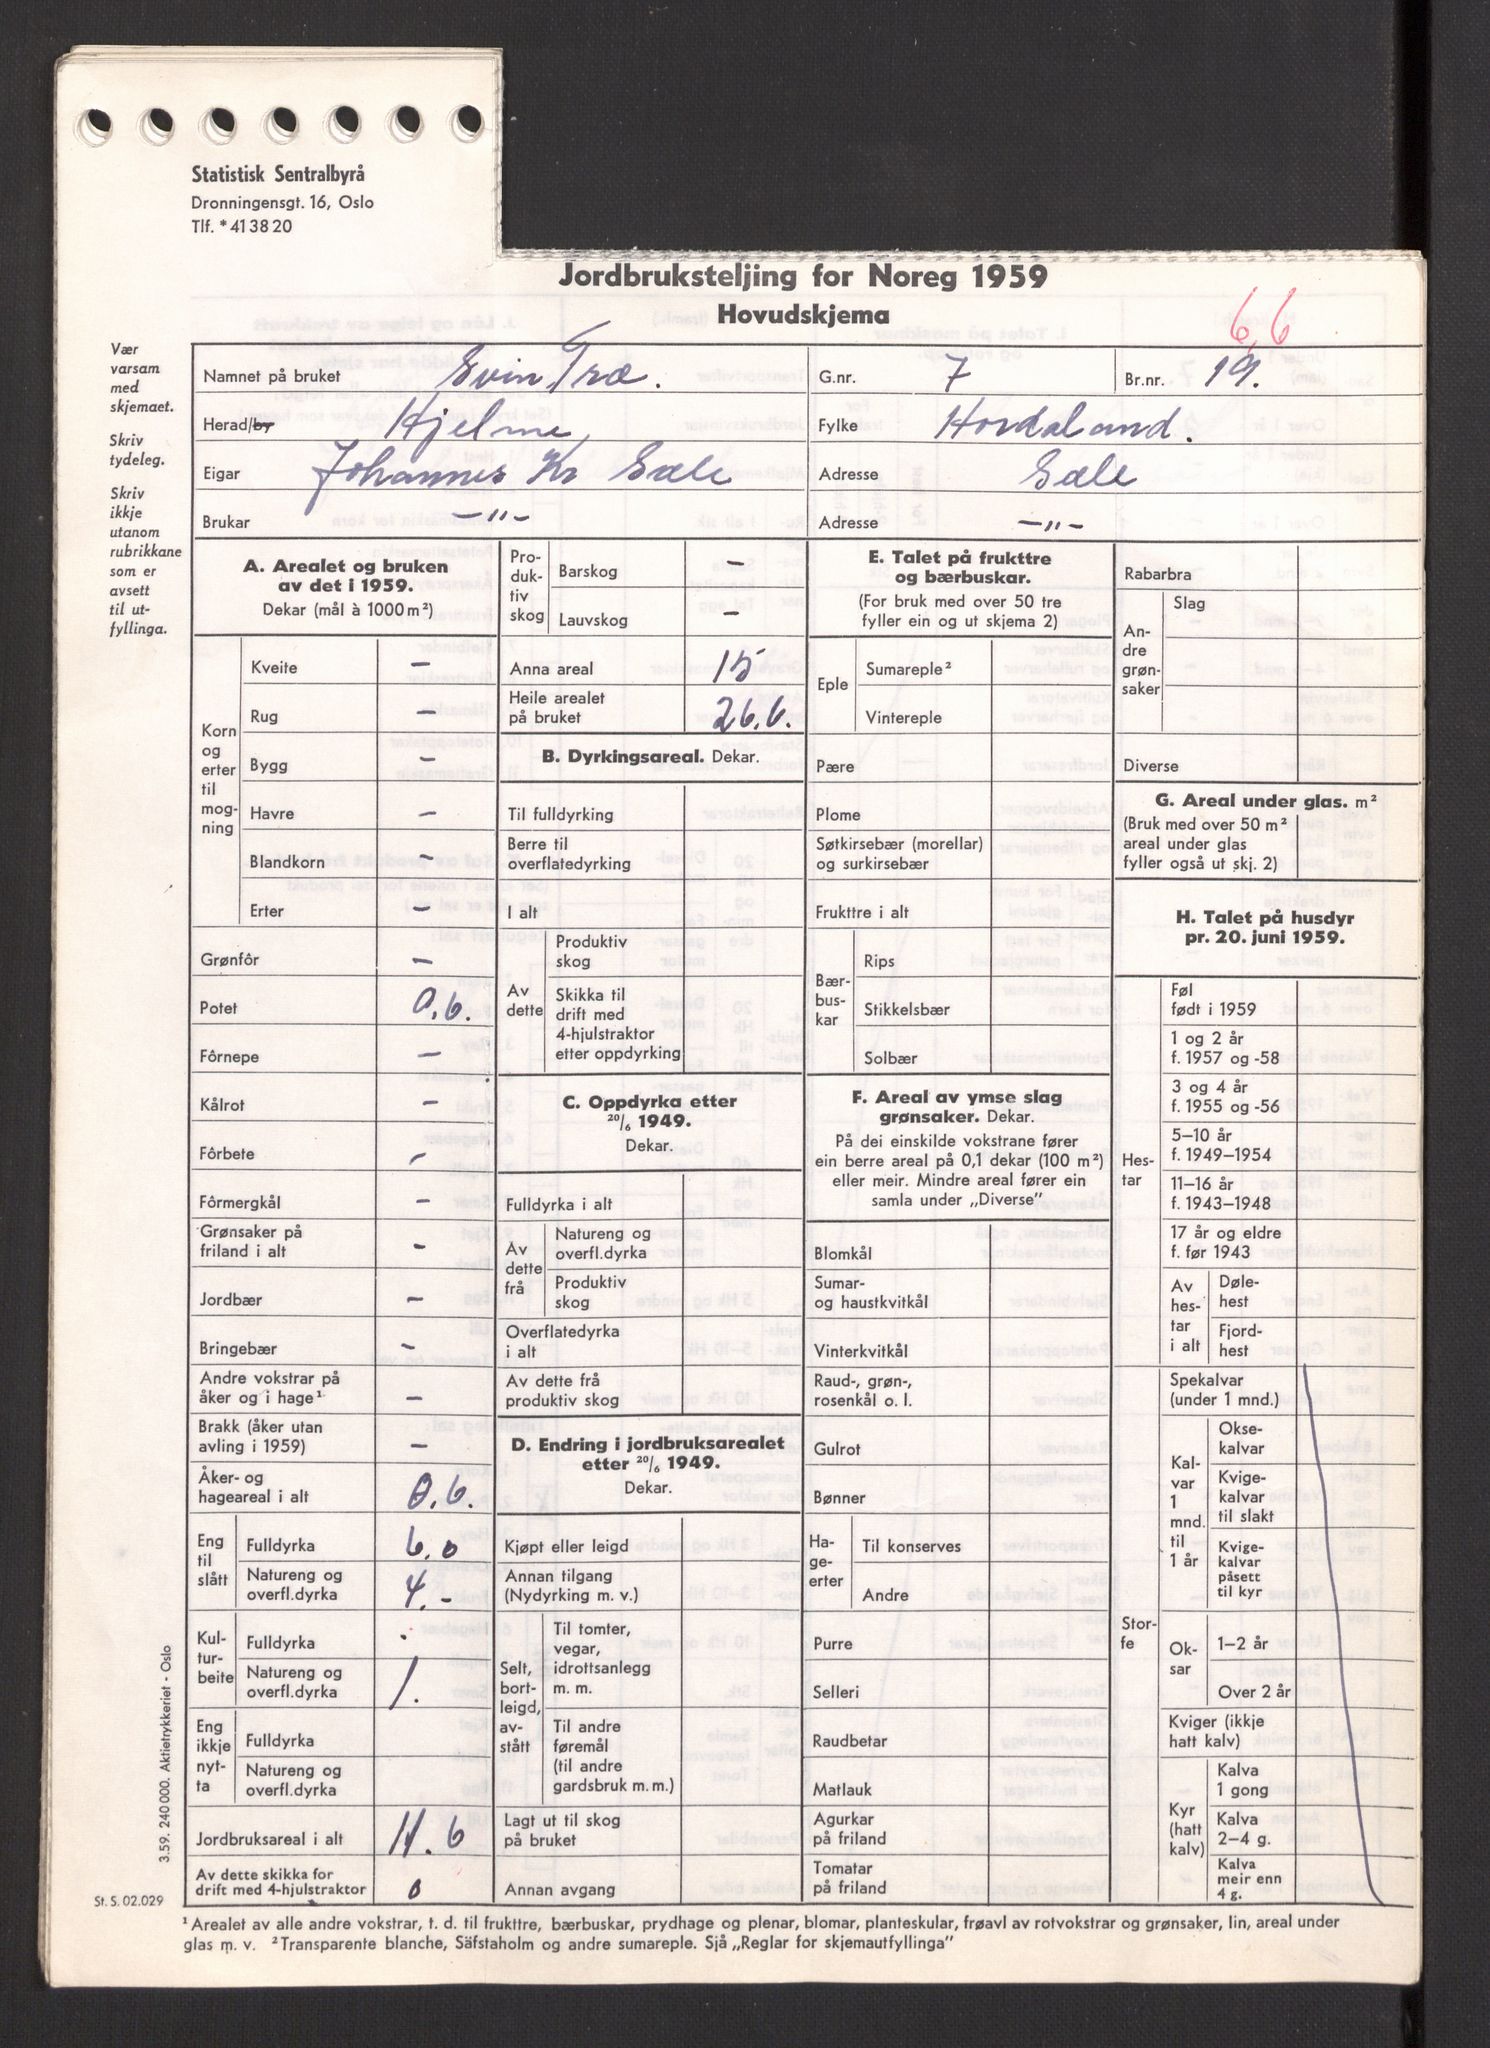 Statistisk Sentralbyrå
Dronningensgt. 16, Oslo
Tlf. * 41 38 20
Jordbruksteljing for Noreg 1959
Hovudskjema
6,6
Vær
varsam
med
skjemaet.
Skriv
tydeleg.
Skriv
ikkje
utanom
rubrikkane
som er
avsett
til ut-
fyllinga.
Namnet på bruket Evin Træ. G.nr. 7 Br.nr. 19.
Herad/by Hjelme Fylke Hordaland.
Eigar Johannes Kr Sæle Adresse Sæle
Brukar —"— Adresse —"—
A. Arealet og bruken
av det i 1959.
Dekar (mål à 1000 m²)
Korn
og
erter
til
mog-
ning
Kveite –
Rug –
Bygg –
Havre –
Blandkorn –
Erter –
Grønfôr –
Potet 0,6.
Fôrnepe –
Kålrot –
Fôrbete –
Fôrmergkål –
Grønsaker på
friland i alt –
Jordbær –
Bringebær –
Andre vokstrar på
åker og i hage¹ –
Brakk (åker utan
avling i 1959) –
Åker- og
hageareal i alt 0,6.
Eng
til
slått
Fulldyrka 6,0
Natureng og
overfl.dyrka 4.-
Kul-
tur-
beite
Fulldyrka .
Natureng og
overfl.dyrka 1.
Eng
ikkje
nyt-
ta
Fulldyrka
Natureng og
overfl.dyrka
Jordbruksareal i alt 11.6
Av dette skikka for
drift med 4-hjulstraktor 0
Pro-
duk-
tiv
skog
Barskog –
Lauvskog –
Anna areal 15
Heile arealet
på bruket 26,6.
B. Dyrkingsareal. Dekar.
Til fulldyrking
Berre til
overflatedyrking
I alt
Av
dette
Produktiv
skog
Skikka til
drift med
4-hjulstraktor
etter oppdyrking
C. Oppdyrka etter
20/6 1949.
Dekar.
Fulldyrka i alt
Av
dette
frå
Natureng og
overfl.dyrka
Produktiv
skog
Overflatedyrka
i alt
Av dette frå
produktiv skog
D. Endring i jordbruksarealet
etter 20/6 1949.
Dekar.
Kjøpt eller leigd
Annan tilgang
(Nydyrking m. v.)
Selt,
bort-
leigd,
av-
stått
Til tomter,
vegar,
idrottsanlegg
m. m.
Til andre
føremål
(til andre
gardsbruk m. m.)
Lagt ut til skog
på bruket
Annan avgang
E. Talet på frukttre
og bærbuskar.
(For bruk med over 50 tre
fyller ein og ut skjema 2)
Eple
Sumareple²
Vintereple
Pære
Plome
Søtkirsebær (morellar)
og surkirsebær
Frukttre i alt
Bær-
bus-
kar
Rips
Stikkelsbær
Solbær
F. Areal av ymse slag
grønsaker. Dekar.
På dei einskilde vokstrane fører
ein berre areal på 0,1 dekar (100 m²)
eller meir. Mindre areal fører ein
samla under „Diverse"
Blomkål
Sumar-
og haustkvitkål
Vinterkvitkål
Raud-, grøn-,
rosenkål o. l.
Gulrot
Bønner
Ha-
ge-
erter
Til konserves
Andre
Purre
Selleri
Raudbetar
Matlauk
Agurkar
på friland
Tomatar
på friland
Rabarbra
An-
dre
grøn-
saker
Slag
Diverse
G. Areal under glas. m²
(Bruk med over 50 m²
areal under glas
fyller også ut skj. 2)
H. Talet på husdyr
pr. 20. juni 1959.
Hes-
tar
Føl
født i 1959
1 og 2 år
f. 1957 og -58
3 og 4 år
f. 1955 og -56
5–10 år
f. 1949–1954
11–16 år
f. 1943–1948
17 år og eldre
f. før 1943
Av
hes-
tar
i alt
Døle-
hest
Fjord-
hest
Stor-
fe
Spekalvar
(under 1 mnd.)
Kal-
var
1
mnd.
til
1 år
Okse-
kalvar
Kvige-
kalvar
til slakt
Kvige-
kalvar
påsett
til kyr
Ok-
sar
1–2 år
Over 2 år
Kviger (ikkje
hatt kalv)
Kyr
(hatt
kalv)
Kalva
1 gong
Kalva
2–4 g.
Kalva
meir enn
4 g.
3.59. 240 000. Aktietrykkeriet - Oslo
St. S. 02.029
¹ Arealet av alle andre vokstrar, t. d. til frukttre, bærbuskar, prydhage og plenar, blomar, planteskular, frøavl av rotvokstrar og grønsaker, lin, areal under
glas m. v. ² Transparente blanche, Säfstaholm og andre sumareple. Sjå „Reglar for skjemautfyllinga"